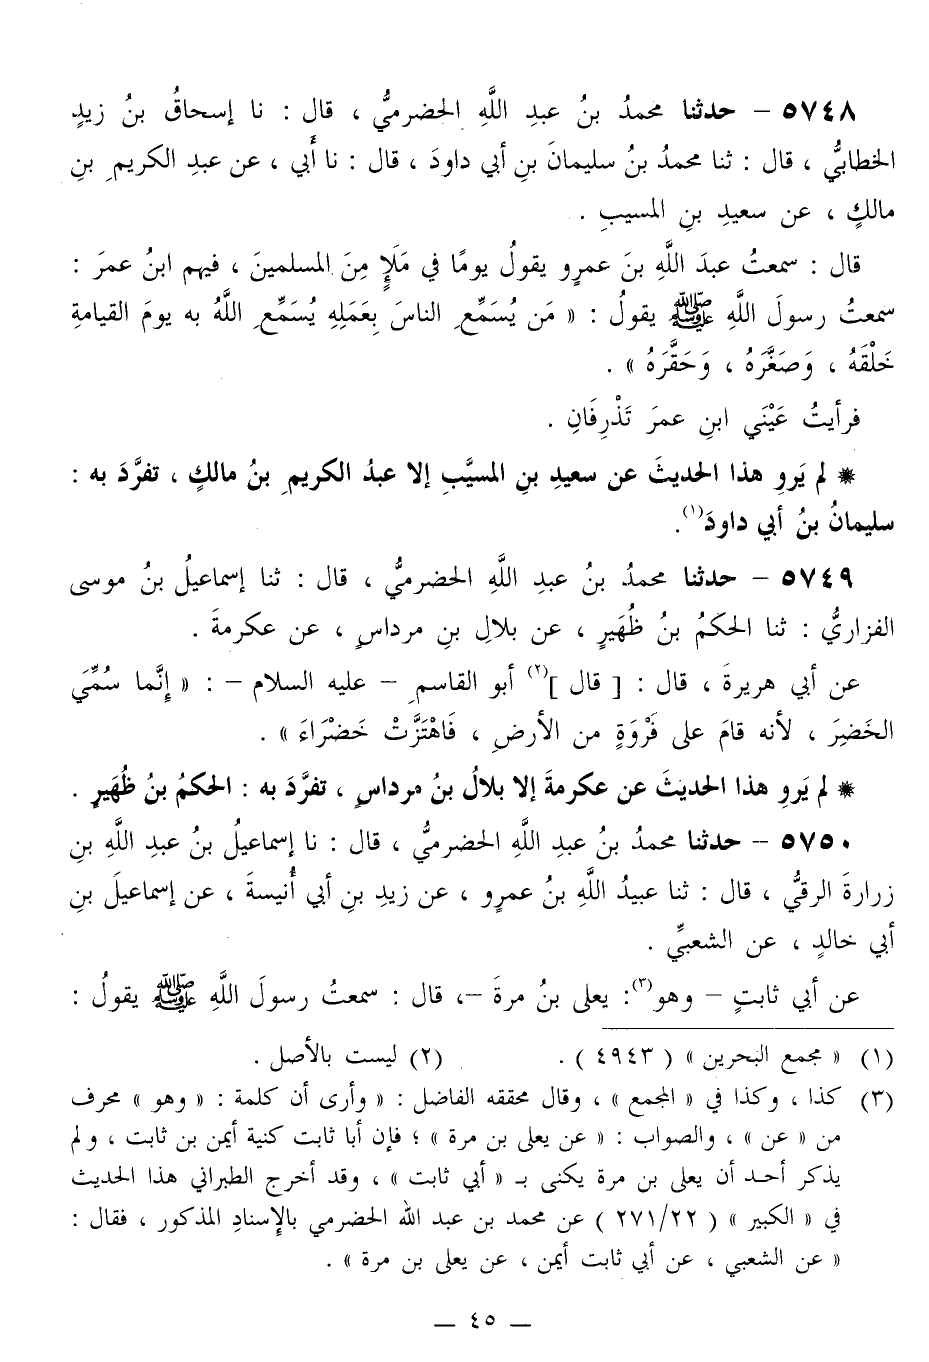 ٥٧٤٨ – حدثنا محمدُ بنُ عبدِ اللَّهِ الحضرميُّ ، قال : نا إسحاقُ بنُ زيدٍ
الخطابيُّ ، قال : ثنا محمدُ بنُ سليمانَ بنِ أبي داودَ ، قال : نا أَبي ، عن عبدِ الكريمِ بنِ
مالكٍ ، عن سعيدِ بنِ المسيبِ .
قال : سمعتُ عبدَ اللَّهِ بنَ عمرٍو يقولُ يومًا في مَلَإٍ مِنَ المسلمينَ ، فيهم ابنُ عمرَ :
سمعتُ رسولَ اللَّهِ ﷺ يقولُ : « مَن يُسَمِّعِ الناسَ بِعَمَلِهِ يُسَمِّعِ اللَّهُ به يومَ القيامةِ
خَلْقَهُ ، وَصَغَّرَهُ ، وَحَقَّرَهُ » .
فرأيتُ عَيْنَي ابنِ عمرَ تَذْرِفَانِ .
* لم يَروِ هذا الحديثَ عن سعيدِ بنِ المسيَّبِ إلا عبدُ الكريمِ بنُ مالكٍ ، تفرَّدَ به :
سليمانُ بنُ أبي داودَ(١).
٥٧٤٩ – حدثنا محمدُ بنُ عبدِ اللَّهِ الحضرميُّ ، قال : ثنا إسماعيلُ بنُ موسى
الفزاريُّ : ثنا الحكمُ بنُ ظُهَيرٍ ، عن بلالِ بنِ مرداسٍ ، عن عكرمةَ .
عن أبي هريرةَ ، قال : [ قال ](٢) أبو القاسمِ – عليه السلام – : « إنَّما سُمِّيَ
الخَضِرَ ، لأنه قامَ على فَرْوَةٍ من الأرضِ ، فَاهْتَزَّتْ خَضْرَاءَ » .
* لم يَروِ هذا الحديثَ عن عكرمةَ إلا بلالُ بنُ مرداسٍ ، تفرَّدَ به : الحكمُ بنُ ظُهَيرٍ .
٥٧٥٠ – حدثنا محمدُ بنُ عبدِ اللَّهِ الحضرميُّ ، قال : نا إسماعيلُ بنُ عبدِ اللَّهِ بنِ
زرارةَ الرقيُّ ، قال : ثنا عبيدُ اللَّهِ بنُ عمرٍو ، عن زيدِ بنِ أبي أُنيسةَ ، عن إسماعيلَ بنِ
أبي خالدٍ ، عن الشعبيِّ .
عن أبي ثابتٍ – وهو(٣): يعلى بنُ مرةَ –، قال : سمعتُ رسولَ اللَّهِ ﷺ يقولُ :
(١) « مجمع البحرين » ( ٤٩٤٣ ) . (٢) ليست بالأصل .
(٣) كذا ، وكذا في « المجمع » ، وقال محققه الفاضل : « وأرى أن كلمة : « وهو » محرف
من « عن » ، والصواب : « عن يعلى بن مرة » ؛ فإن أبا ثابت كنية أيمن بن ثابت ، ولم
يذكر أحد أن يعلى بن مرة يكنى بـ « أبي ثابت » ، وقد أخرج الطبراني هذا الحديث
في « الكبير » ( ٢٧١/٢٢ ) عن محمد بن عبد الله الحضرمي بالإسنادِ المذكور ، فقال :
« عن الشعبي ، عن أبي ثابت أيمن ، عن يعلى بن مرة » .
— ٤٥ —